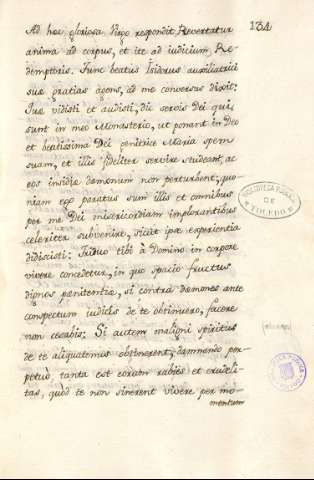 134
Ad hec gloriosa Virgo respondit Revertatur
anima ad corpus, et ite ad iudicium, Re-
demptoris. Tunc beatus Isidorus auxiliatrici
suæ gratias agens, ad me conversus dixit:
Quæ vidisti et audisti, dic servis Dei qui
sunt in meo Monasterio, ut ponant in Deo
et beatissima Dei genitrice Maria spem
suam, et illis fideliter servire studeant, ac
eos insidiæ dæmonum non perturbent, quo-
niam ego paratus sum illis et omnibus
per me Dei misericordiam implorantibus
celeriter subvenire, sicut ipse experientia
didiscisti. Triduo tibi à Domino in corpore
vivere conceditur, in quo spacio fructus
dignos penitentiæ, si contra dæmones ante
conspectum iudicis de te obtinuero, facere
non cesabis. Si autem maligni spiritus
de te aliquatenus obtinerent, damnando per-
petuò, tanta est eorum rabies et crudeli-
tas, quòd te non sinerent vivere per mo-
mentum
BIBLIOTECA PUBLICA
DE
TOLEDO